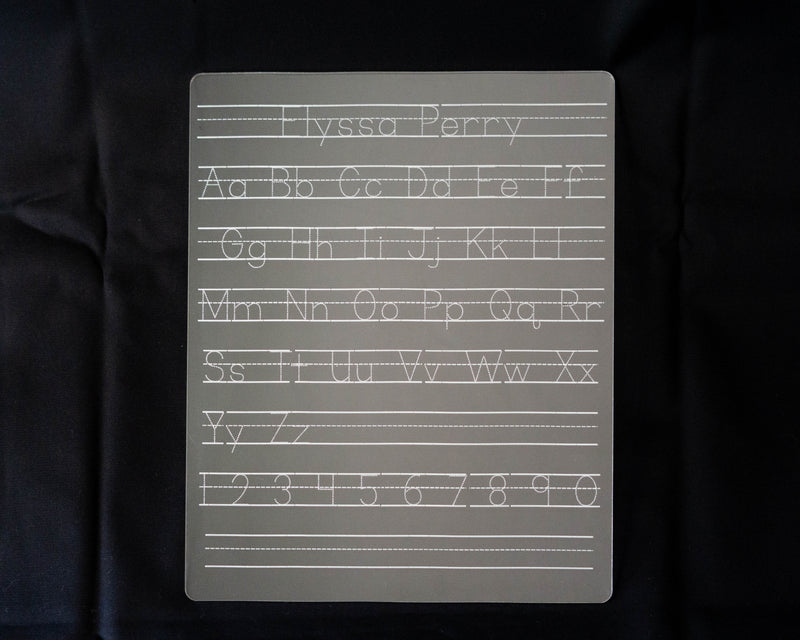 Elyssa Perry
Aa Bb Cc Dd Ee Ff
Gg Hh Ii Jj Kk Ll
Mm Nn Oo Pp Qq Rr
Ss Tt Uu Vv Ww Xx
Yy Zz
1 2 3 4 5 6 7 8 9 0